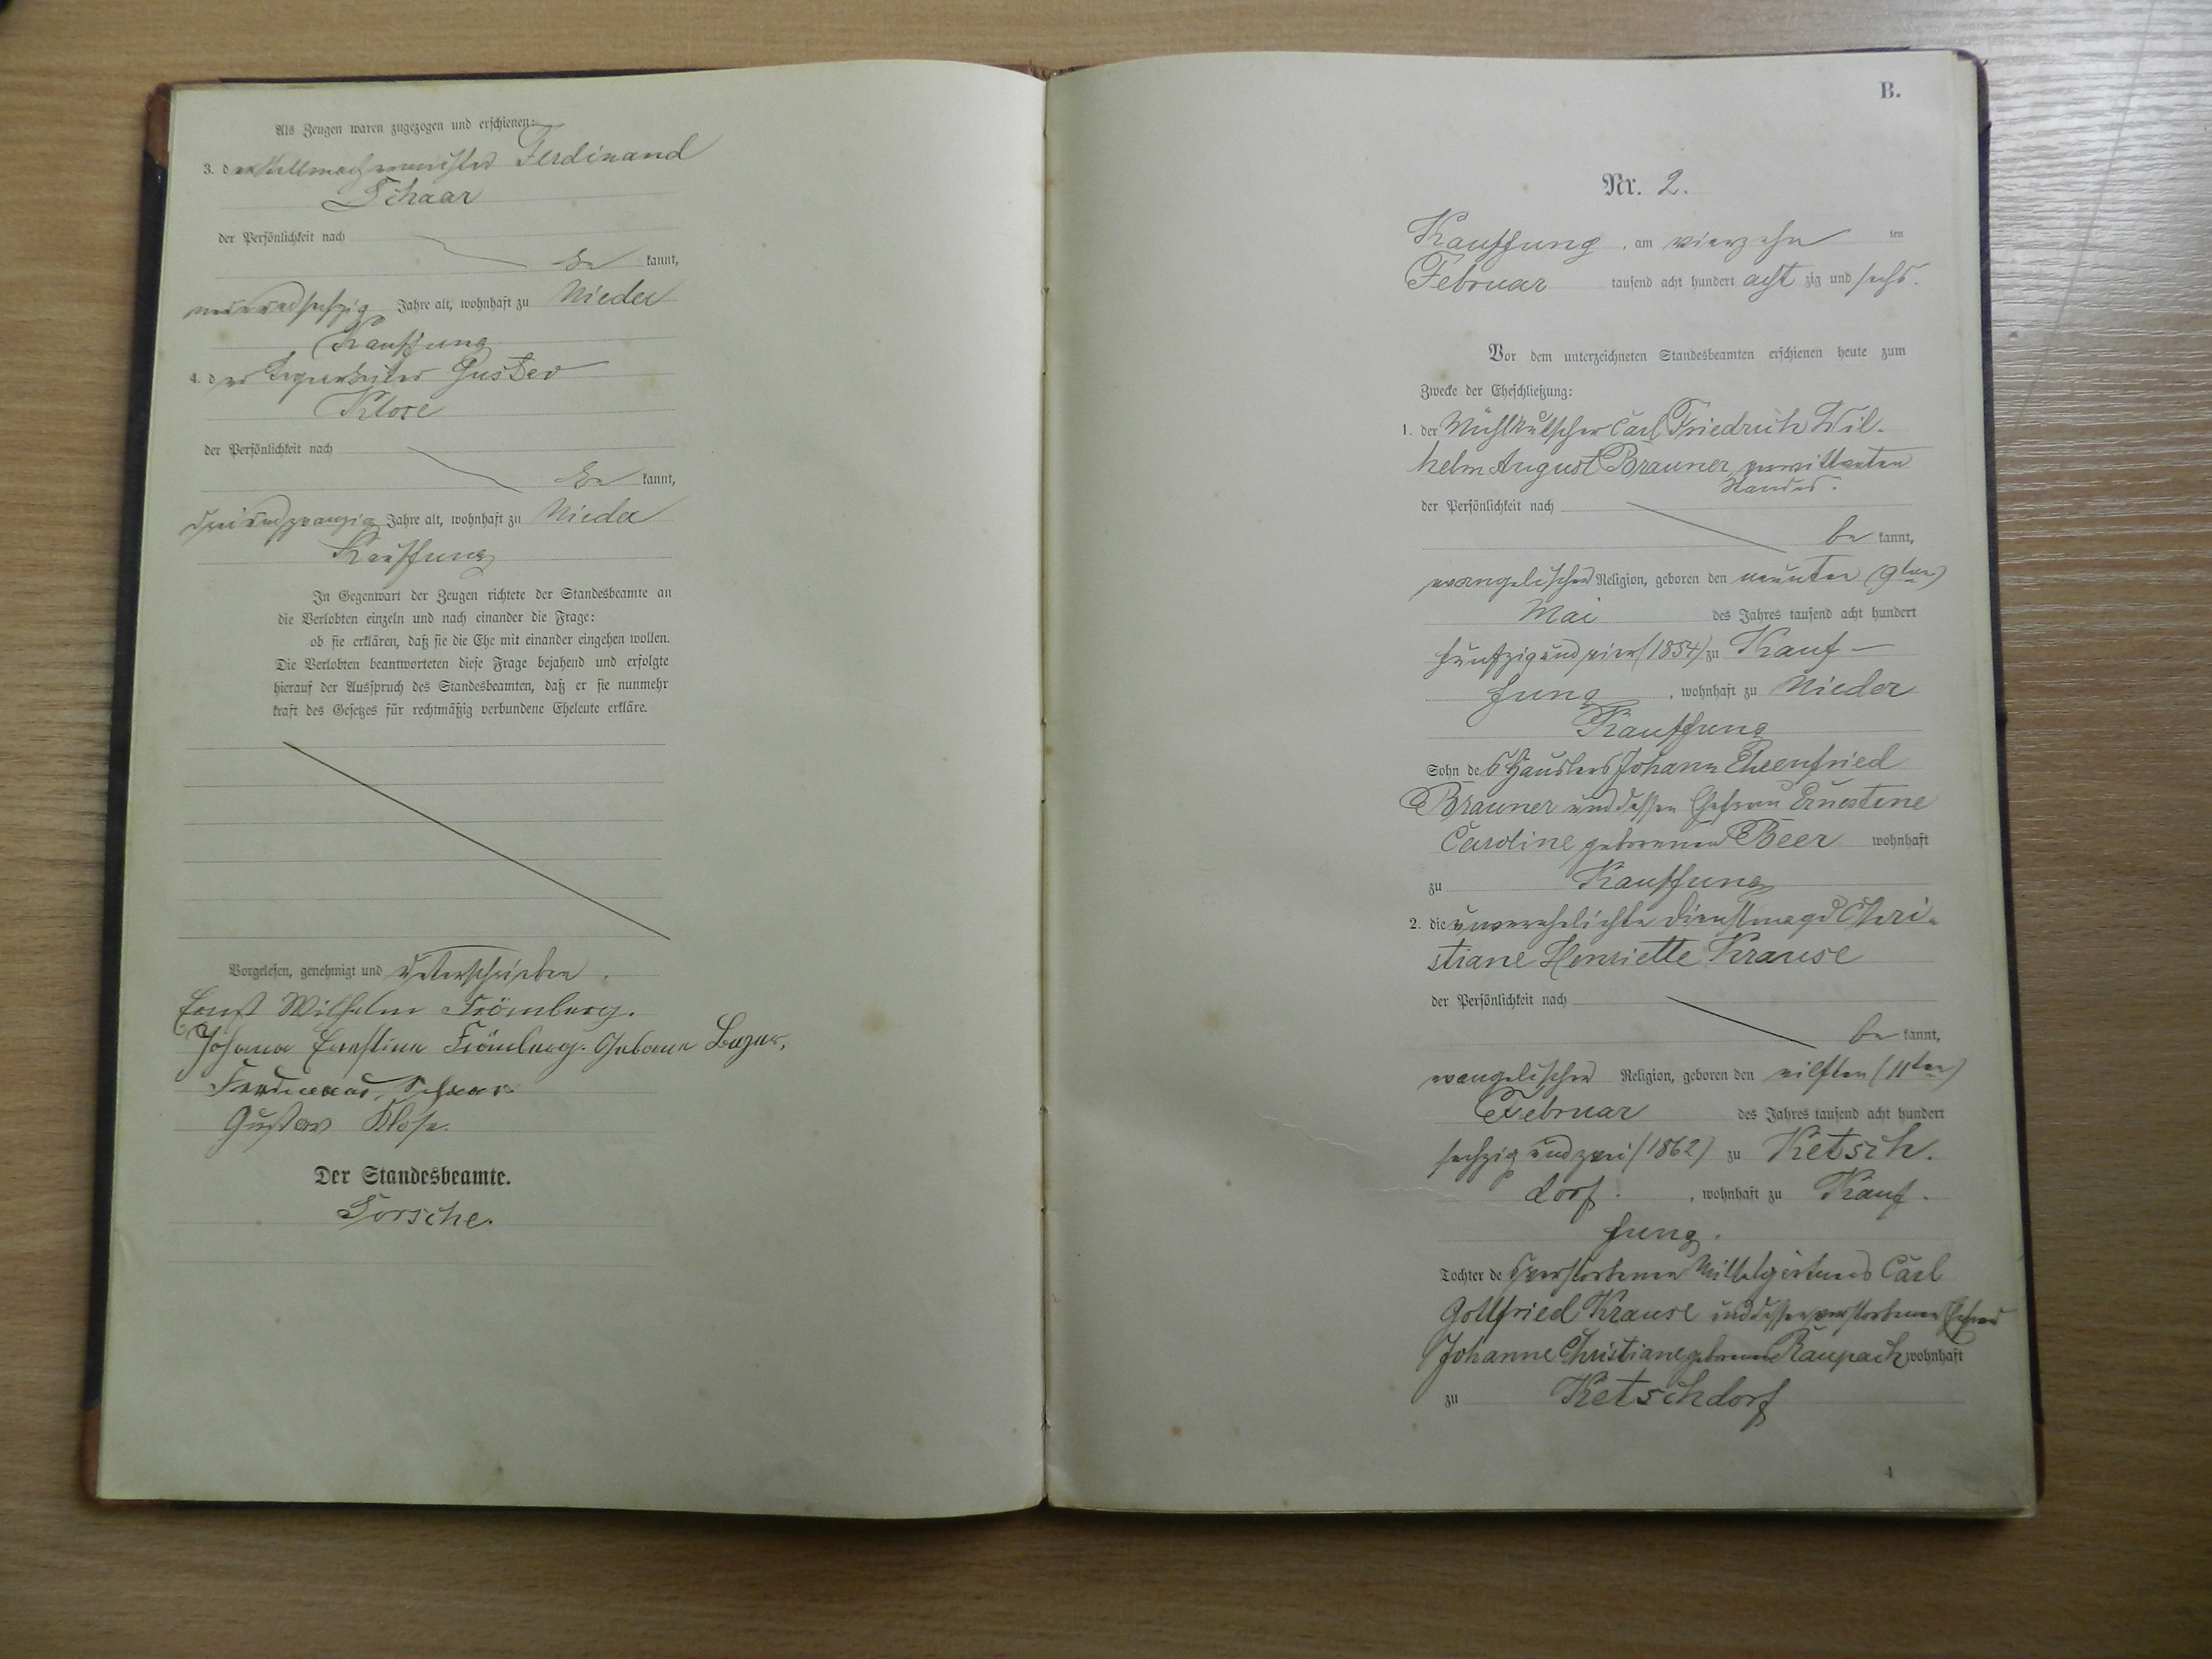 Als Zeugen waren zugezogen und erschienen:
3. der Stellmachermeister Ferdinand
Schaar
der Persönlichkeit nach
be kannt,
Jahre alt, wohnhaft zu Nieder
Kauffung
4. der Gustav
Klose
der Persönlichkeit nach
be kannt,
dreiundzwanzig Jahre alt, wohnhaft zu Nieder
Kauffung
In Gegenwart der Zeugen richtete der Standesbeamte an
die Verlobten einzeln und nach einander die Frage:
ob sie erklären, daß sie die Ehe mit einander eingehen wollen.
Die Verlobten beantworteten diese Frage bejahend und erfolgte
hierauf der Ausspruch des Standesbeamten, daß er sie nunmehr
kraft des Gesetzes für rechtmäßig verbundene Eheleute erkläre.
Vorgelesen, genehmigt und unterschrieben.
Ernst Wilhelm Frömberg.
Johanna Ernstine Frömberg. Geborne
Ferdinand Schaar
Gustav Klose.
Der Standesbeamte.
Torsche.
B.
Nr. 2.
Kauffung, am vierzehn ten
Februar tausend acht hundert acht zig und sechs.
Vor dem unterzeichneten Standesbeamten erschienen heute zum
Zwecke der Eheschließung:
1. der Mühlkutscher Carl Friedrich Wil-
helm August Brauner, verwittweten
Standes.
der Persönlichkeit nach
be kannt,
evangelischer Religion, geboren den neunten (9ten)
Mai des Jahres tausend acht hundert
fünfzig und vier (1854) zu Kauf-
fung, wohnhaft zu Nieder
Kauffung
Sohn des Häuslers Johann Ehrenfried
Brauner und dessen Ehefrau Ernestine
Caroline geborenen Beer wohnhaft
zu Kauffung
2. die unverehelichte Dienstmagd Chri-
stiane Henriette Krause
der Persönlichkeit nach
be kannt,
evangelischer Religion, geboren den eilften (11ten)
Februar des Jahres tausend acht hundert
sechzig und zwei (1862) zu Ketsch-
dorf, wohnhaft zu Kauf-
fung.
Tochter des verstorbenen Carl
Gottfried Krause und dessen verstorbenen Ehefrau
Johanne Christiane geborene Raupach wohnhaft
zu Ketschdorf
4